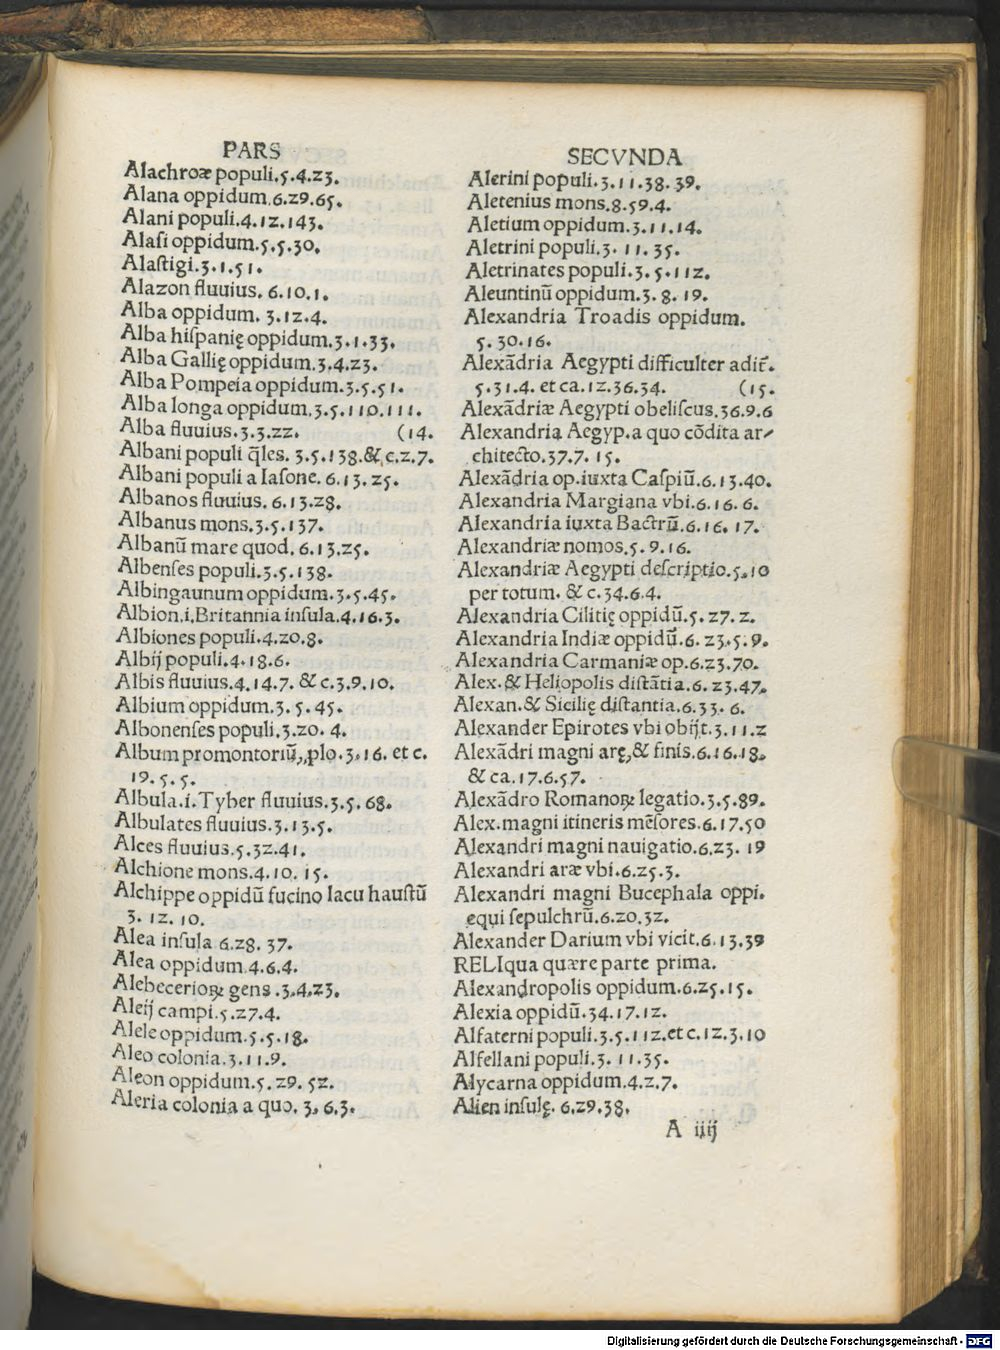 PARS
Alachroæ populi.5.4.23.
Alana oppidum.6.29.65.
Alani populi.4.12.143.
Alasi oppidum.5.5.30.
Alastigi.3.1.51.
Alazon fluuius. 6.10.1.
Alba oppidum. 3.12.4.
Alba hispanię oppidum.3.1.33.
Alba Gallię oppidum.3.4.23.
Alba Pompeia oppidum.3.5.51.
Alba longa oppidum.3.5.110.111.
Alba fluuius.3.3.22. (14.
Albani populi q̃les. 3.5.138.& c.2.7.
Albani populi a Iasone. 6.13.25.
Albanos fluuius. 6.13.28.
Albanus mons.3.5.137.
Albanũ mare quod. 6.13.25.
Albenses populi.3.5.138.
Albingaunum oppidum.3.5.45.
Albion.i.Britannia insula.4.16.3.
Albiones populi.4.20.8.
Albij populi.4.18.6.
Albis fluuius.4.14.7. & c.3.9.10.
Albium oppidum.3.5.45.
Albonenses populi.3.20.4.
Album promontoriũ, plo.3.16. et c.
19.5.5.
Albula.i.Tyber fluuius.3.5.68.
Albulates fluuius.3.13.5.
Alces fluuius.5.32.41.
Alchione mons.4.10.15.
Alchippe oppidũ fucino lacu haustũ
3.12.10.
Alea insula 6.28.37.
Alea oppidum.4.6.4.
Alebecerioꝝ gens.3.4.23.
Aleij campi.5.27.4.
Alele oppidum.5.5.18.
Aleo colonia.3.11.9.
Aleon oppidum.5.29.52.
Aleria colonia a quo. 3.6.3.
SECVNDA
Alerini populi.3.11.38.39.
Aletenius mons.8.59.4.
Aletium oppidum.3.11.14.
Aletrini populi.3.11.35.
Aletrinates populi.3.5.112.
Aleuntinũ oppidum.3.8.19.
Alexandria Troadis oppidum.
5.30.16.
Alexãdria Aegypti difficulter adit̃.
5.31.4. et ca.12.36.34. (15.
Alexãdriæ Aegypti obeliscus.36.9.6
Alexandria Aegyp.a quo cõdita ar-
chitecto.37.7.15.
Alexãdria op.iuxta Caspiũ.6.13.40.
Alexandria Margiana vbi.6.16.6.
Alexandria iuxta Bactrũ.6.16.17.
Alexandriæ nomos.5.9.16.
Alexandriæ Aegypti descriptio.5.10
per totum. & c.34.6.4.
Alexandria Cilitię oppidũ.5.27.2.
Alexandria Indiæ oppidũ.6.23.5.9.
Alexandria Carmaniæ op.6.23.70.
Alex.& Heliopolis distãtia.6.23.47.
Alexan.& Sicilię distantia.6.33.6.
Alexander Epirotes vbi obijt.3.11.2
Alexãdri magni arę,& finis.6.16.18.
& ca.17.6.57.
Alexãdro Romanoꝝ legatio.3.5.89.
Alex.magni itineris mẽsores.6.17.50
Alexandri magni nauigatio.6.23.19
Alexandri aræ vbi.6.25.3.
Alexandri magni Bucephala oppi.
equi sepulchrũ.6.20.32.
Alexander Darium vbi vicit.6.13.39
RELIqua quære parte prima.
Alexandropolis oppidum.6.25.15.
Alexia oppidũ.34.17.12.
Alfaterni populi.3.5.112.et c.12.3.10
Alfellani populi.3.11.35.
Alycarna oppidum.4.2.7.
Alien insulę. 6.29.38.
A iiij
Digitalisierung gefördert durch die Deutsche Forschungsgemeinschaft - DFG